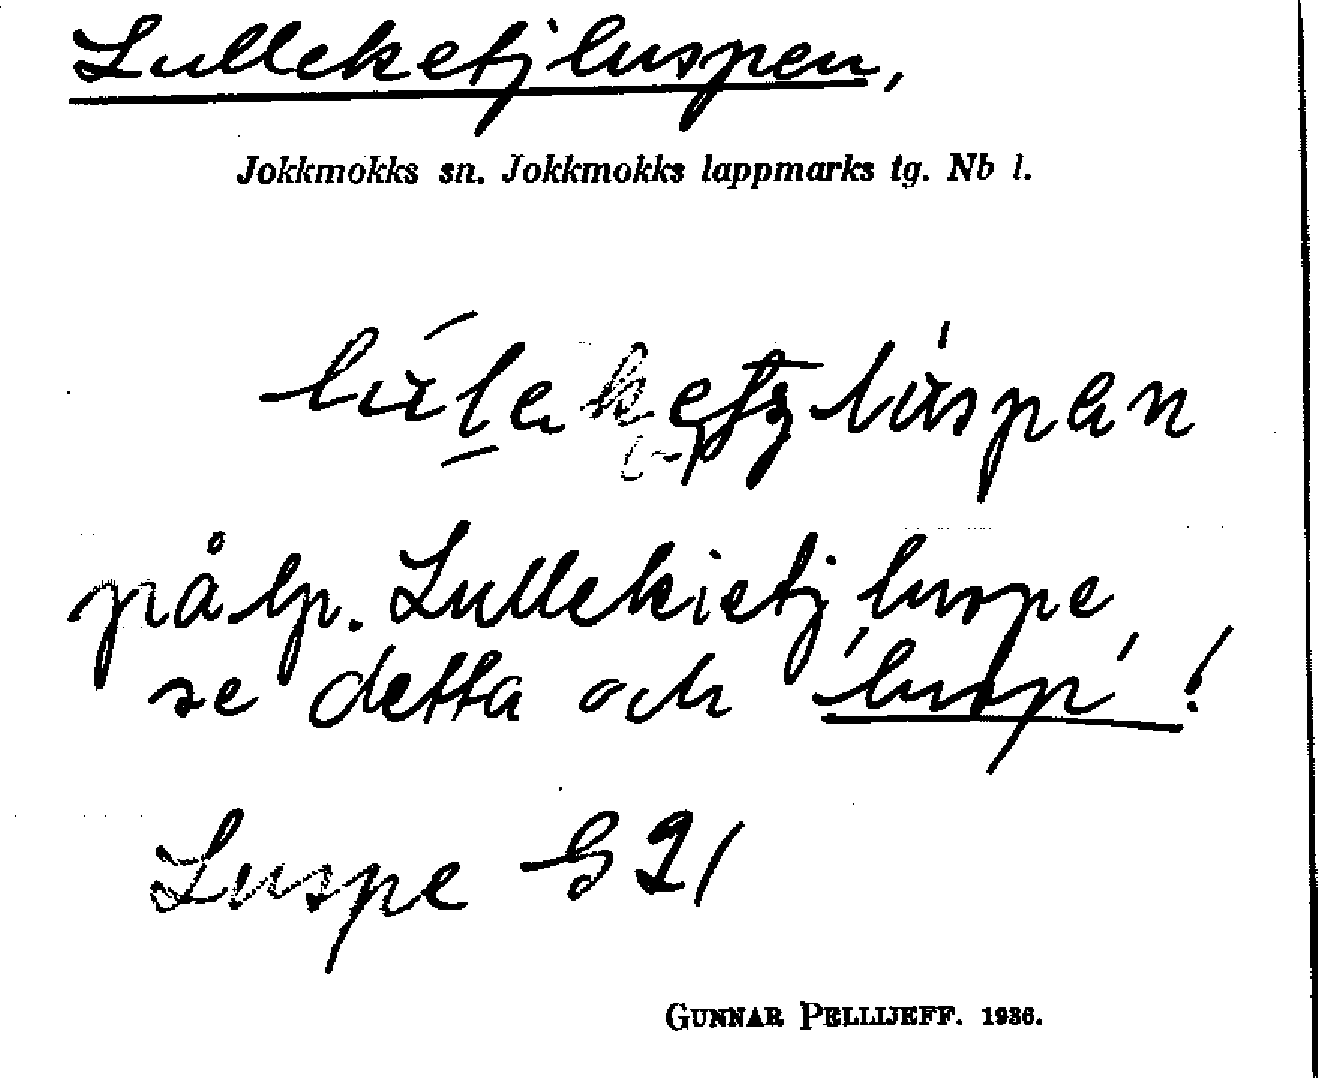 Lulleketjluspen,
Jokkmokks sn. Jokkmokks lappmarks tg. Nb l.
på lp. Lullekietjluspe,
se detta och 'lusp'!
Luspe S 21
GUNNAR PELLIJEFF. 1936.